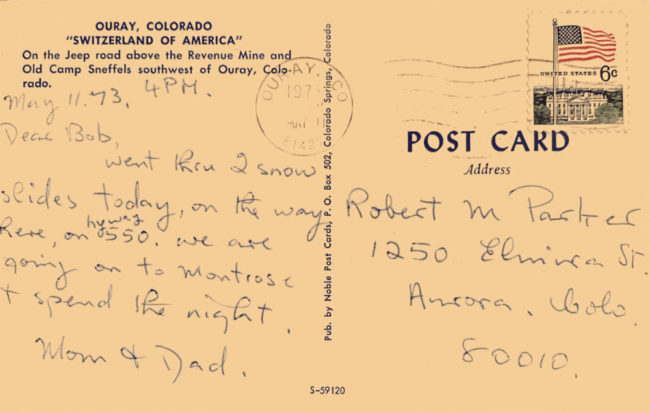 OURAY, COLORADO
"SWITZERLAND OF AMERICA"
On the Jeep road above the Revenue Mine and
Old Camp Sneffels southwest of Ouray, Colo-
rado.
May 11.73. 4PM.
Dear Bob,
went thru 2 snow
slides today, on the way
here, on hyway 550. we are
going on to Montrose
+ spend the night.
Mom & Dad.
Pub. by Noble Post Cards, P.O. Box 502, Colorado Springs, Colorado
S-59120
OURAY, CO
197
MAY 1
8142
UNITED STATES 6c
POST CARD
Address
Robert M Parker
1250 Elmira St.
Aurora. Colo.
80010.